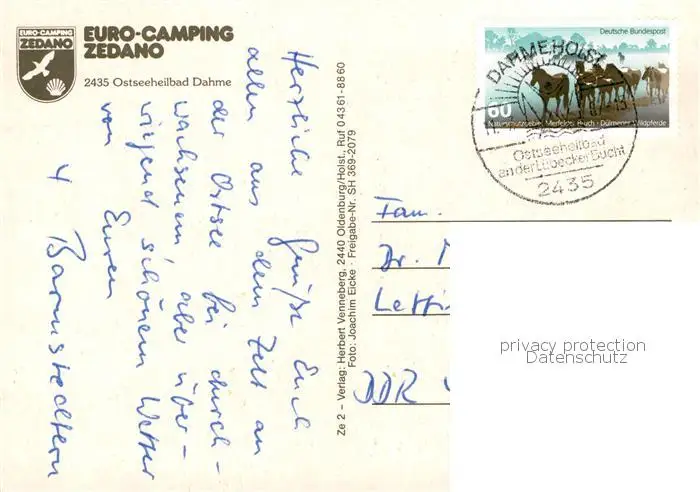 EURO-CAMPING
ZEDANO
EURO-CAMPING
ZEDANO
2435 Ostseeheilbad Dahme
Herzliche Grüße Euch
allen aus dem Zelt an
der Ostsee bei durch-
wachsenem aber über-
wiegend schönem Wetter
von Euren
4 Barmstedtern
Ze 2 – Verlag: Herbert Venneberg, 2440 Oldenburg/Holst., Ruf 0 43 61-88 60
Foto: Joachim Eicke · Freigabe-Nr. SH 369-2079
Deutsche Bundespost
60
Naturschutzgebiet Merfelder Bruch · Dülmener Wildpferde
DAHME HOLST
Ostseeheilbad
an der Lübecker Bucht
2435
Fam.
Dr.
DDR
privacy protection
Datenschutz